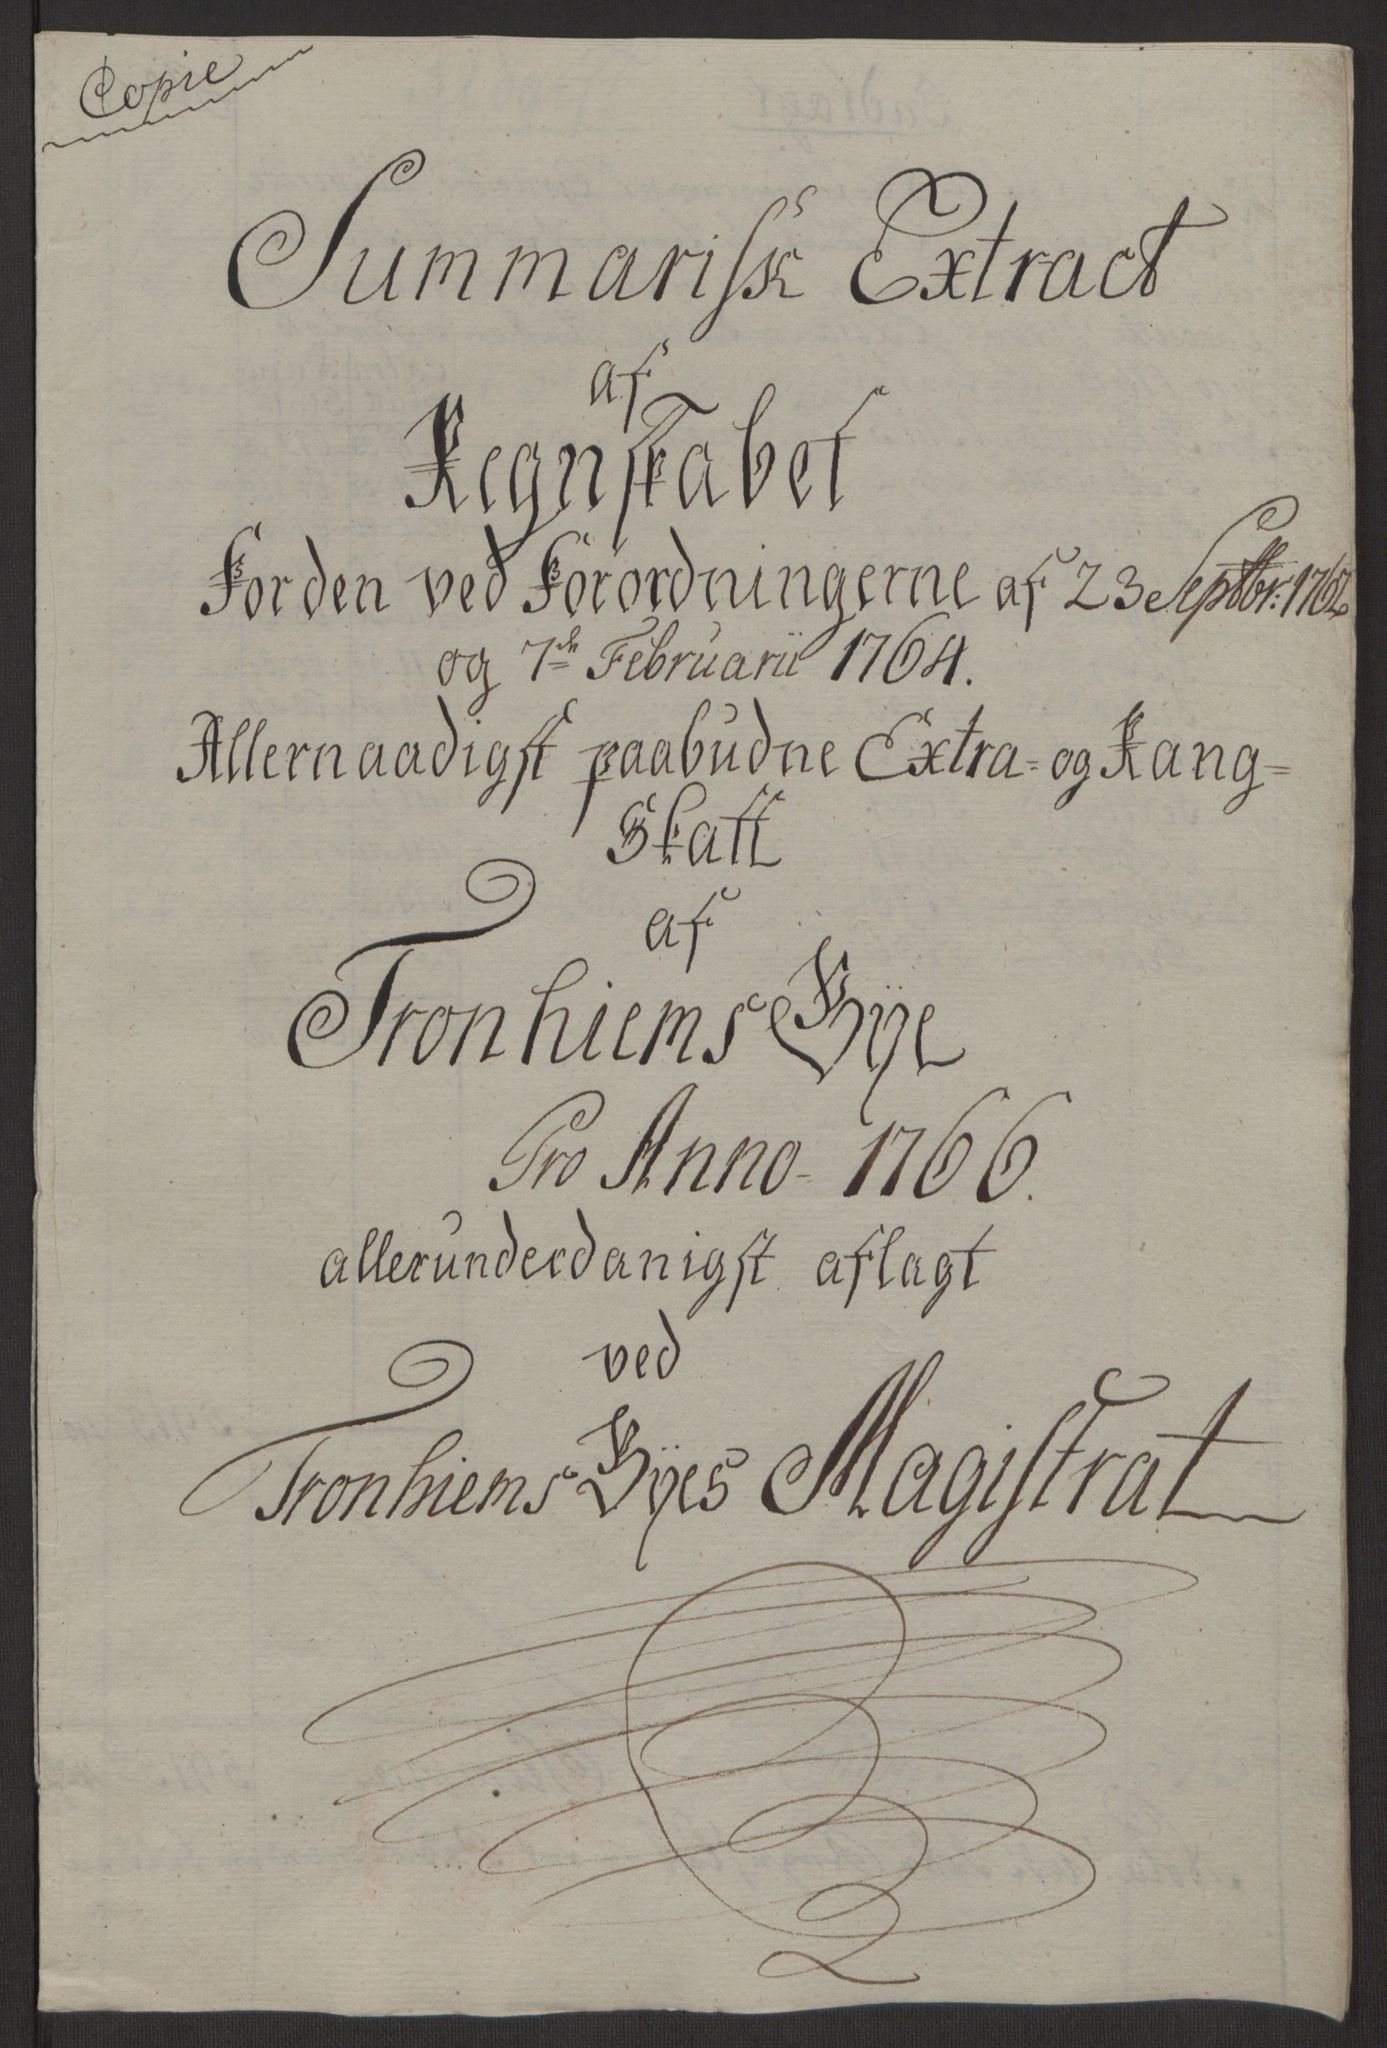 Copie
Summarisk Extract
af
Regnskabet
For den ved Forordningerne af 23 Septbr: 1762
og 7de Februarii 1764.
Allernaadigst paabudne Extra- og Rang-
Skatt
af
Tronhiems Bÿe
Pro Anno- 1766.
allerunderdanigst aflagt
ved
Tronhiems Bÿes Magistrat